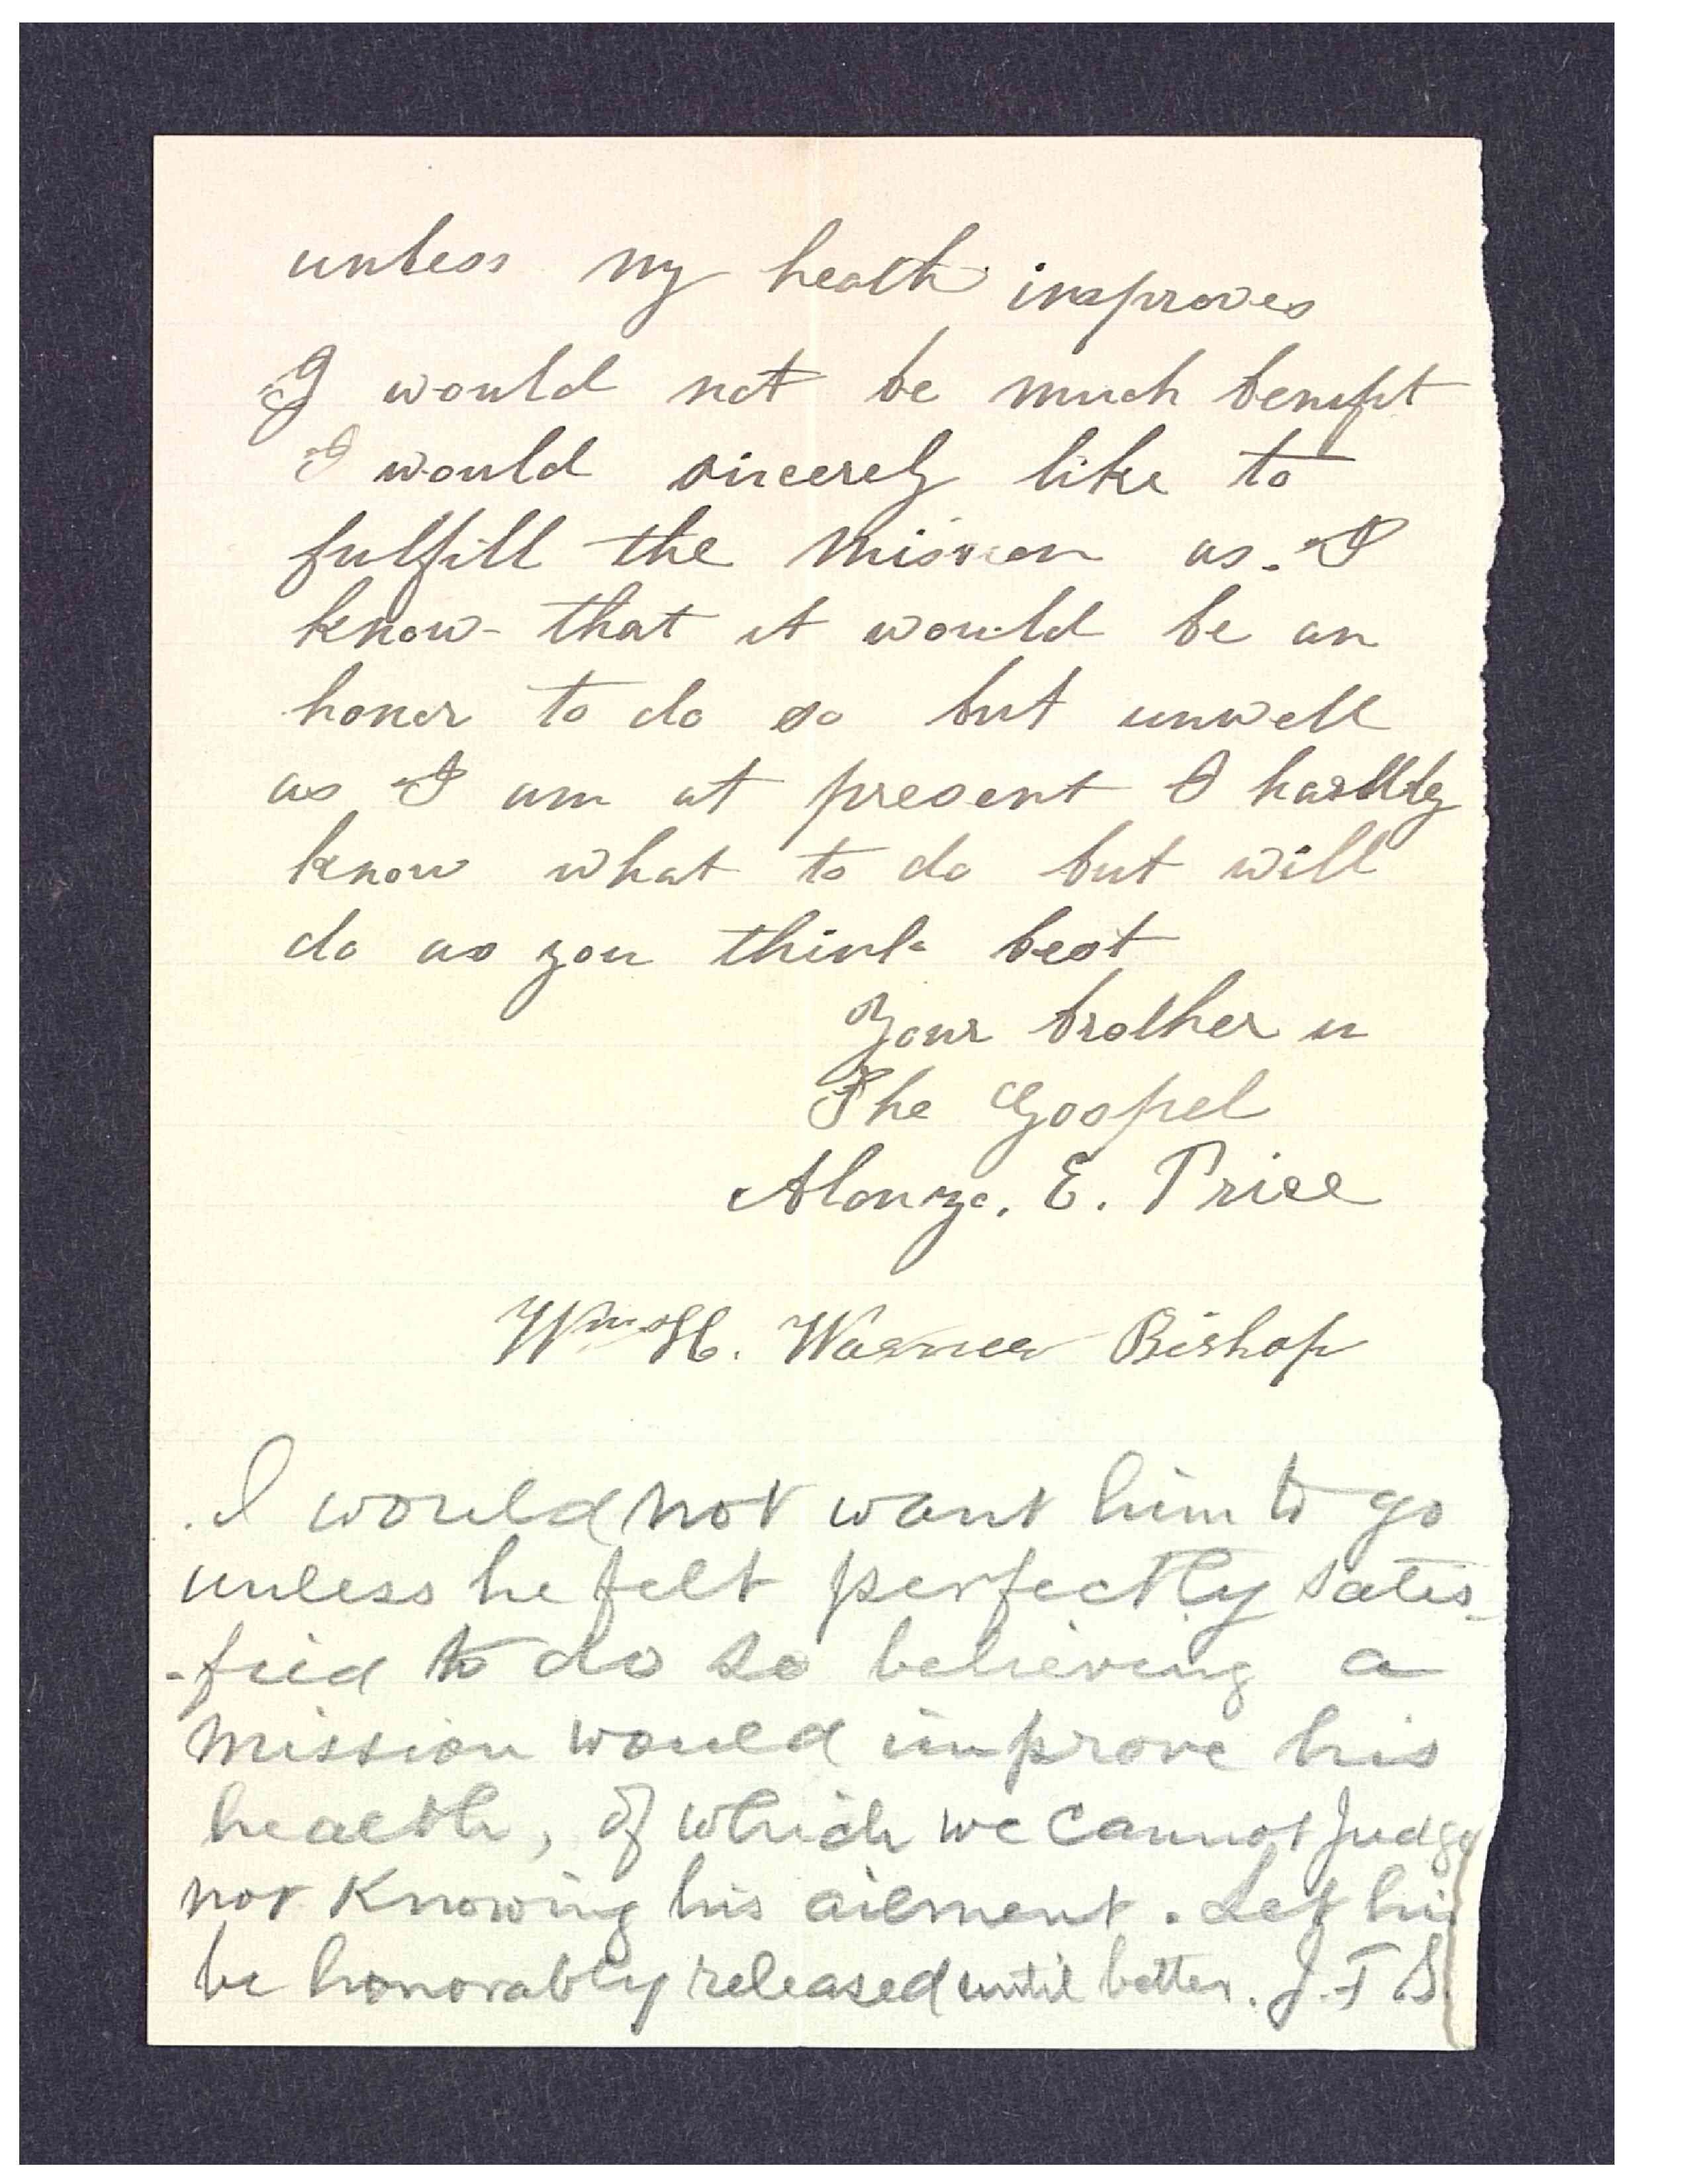 unless my heath improves
I would not be much benifit
I would sincerely like to
fulfill the mission as I
know that it would be an
honor to do so but unwell
as I am at present I hardly
know what to do but will
do as you think best
Your brother in
The Gospel
Alonzo. E. Price
Wm H. Warner Bishop
I would not want him to go
unless he felt perfectly satis-
-fied to do so believing a
mission would improve his
health, of which we cannot judge
not knowing his ailment. Let him
be honorably released until better. J. F. S.